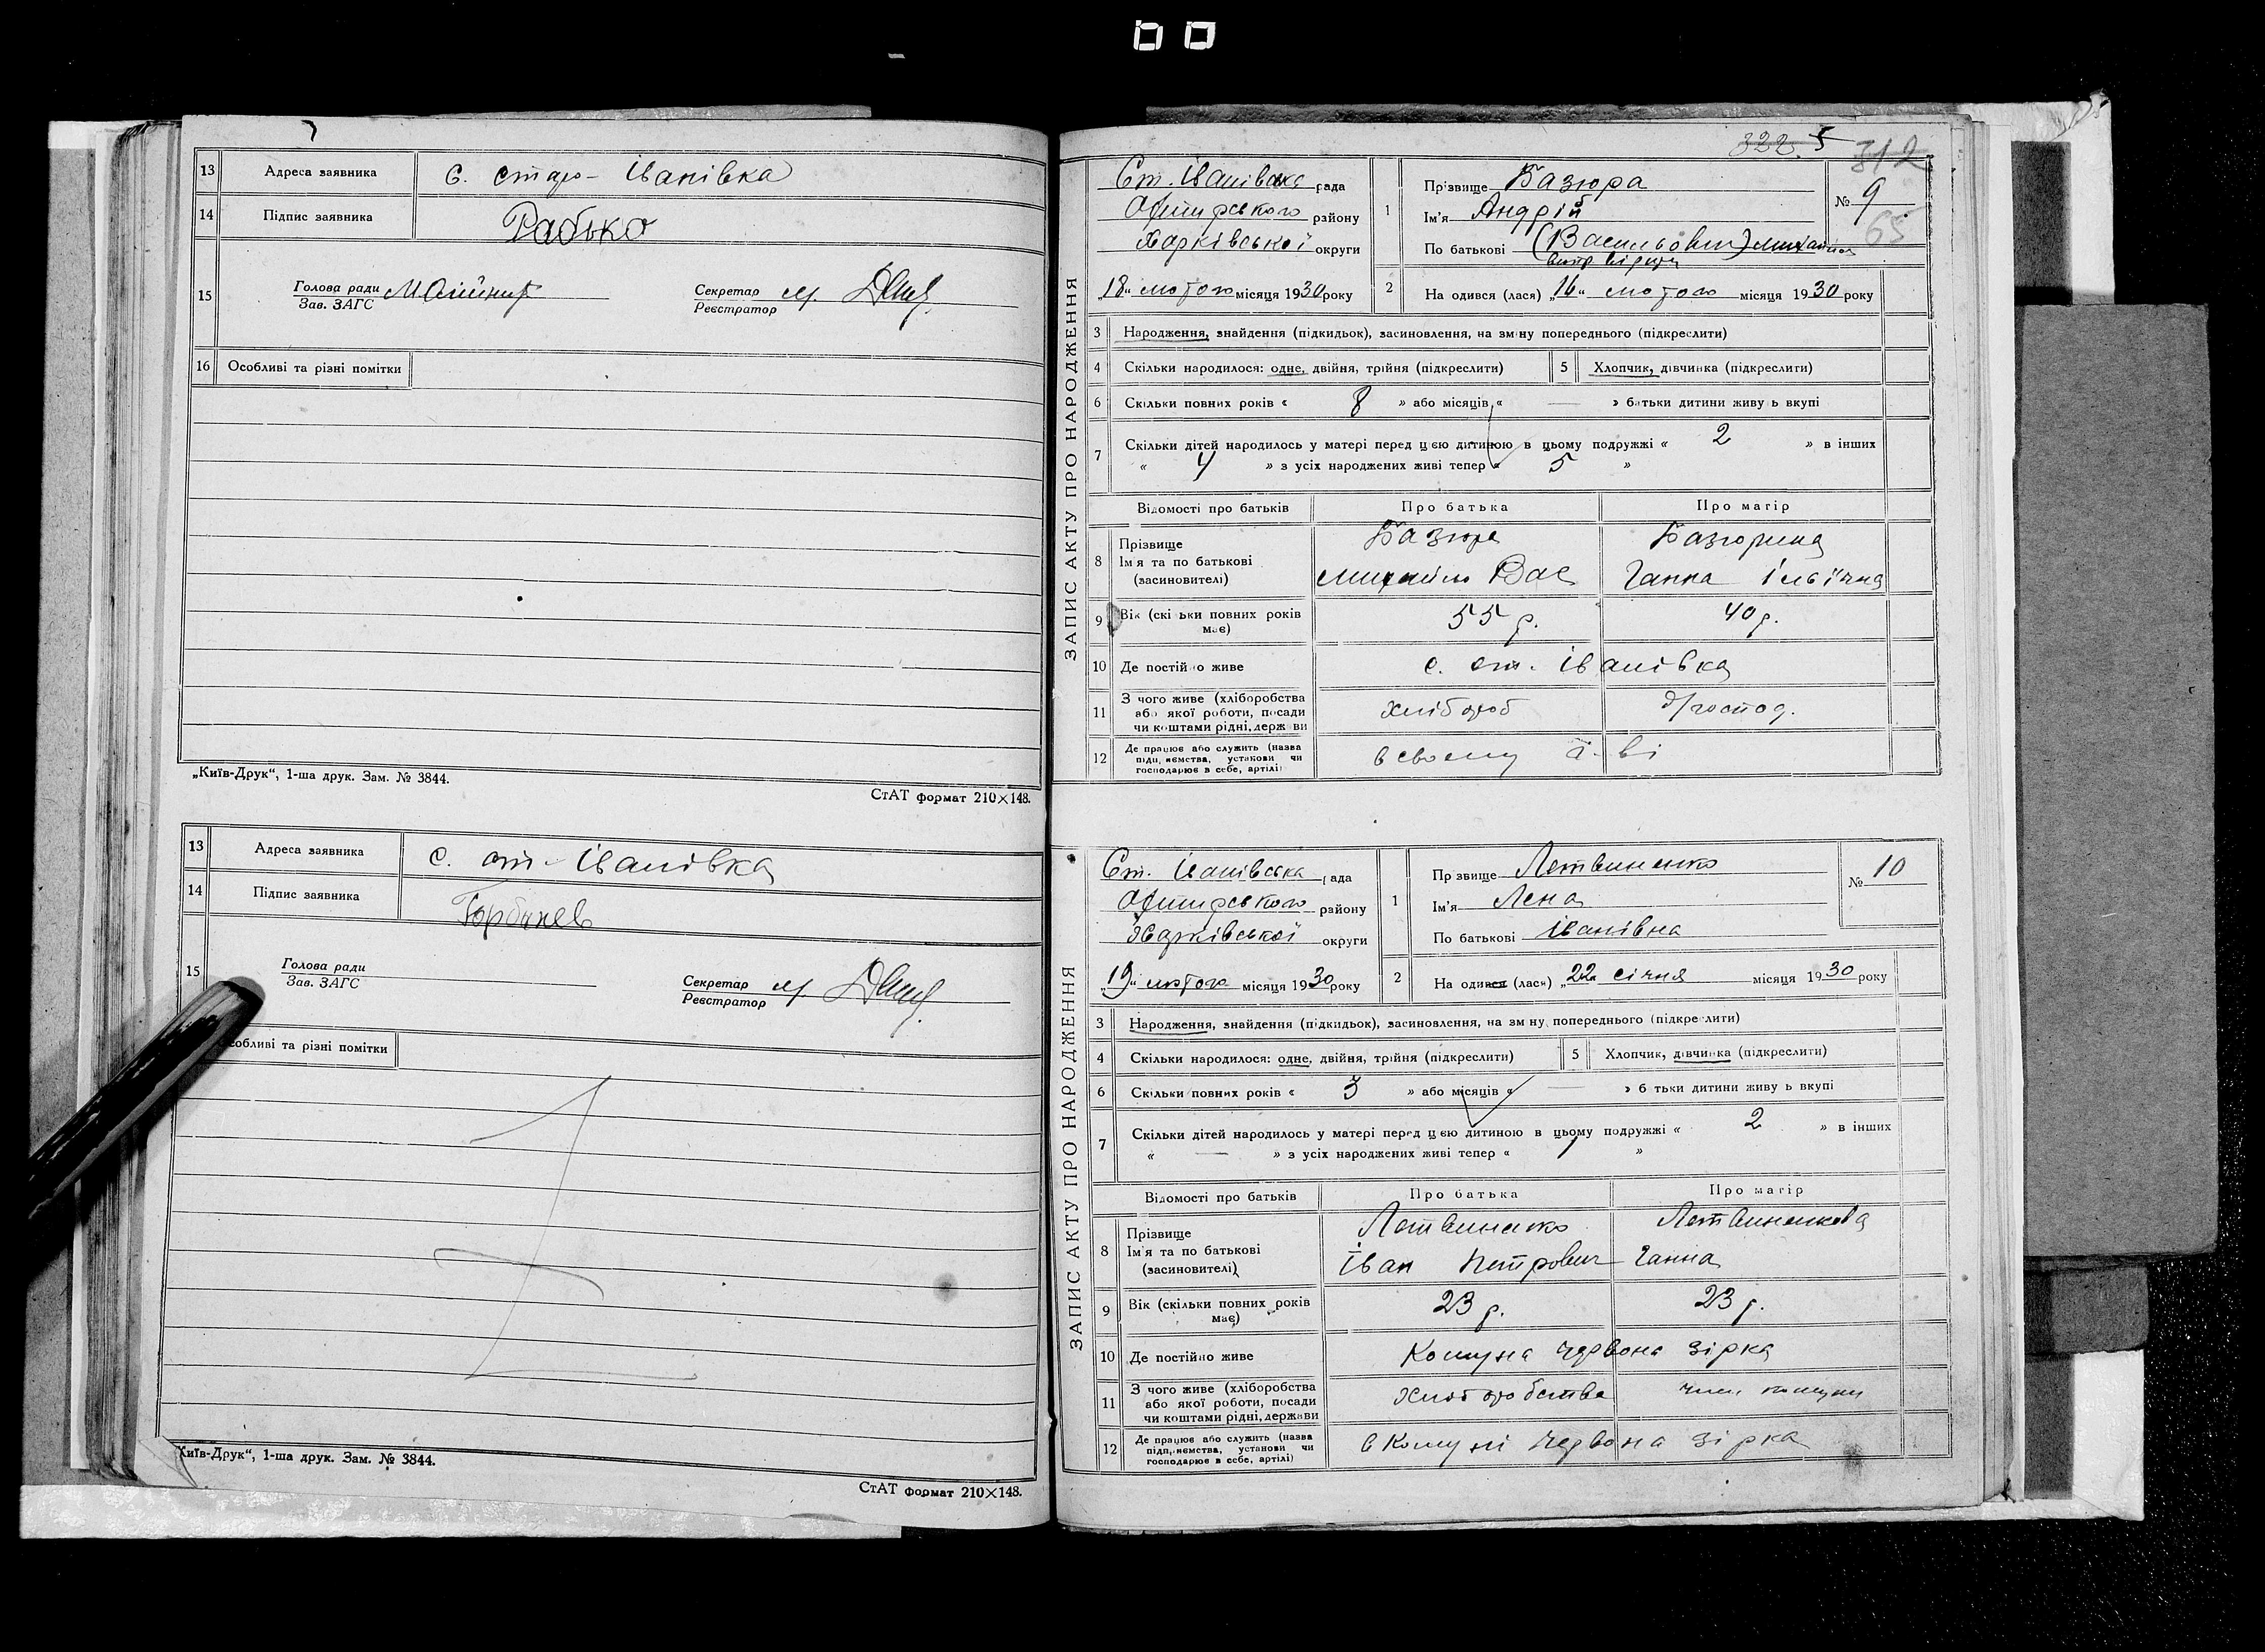 13 Адреса заявника с. старо-Іванівка
14 Підпис заявника Рабько
15 Голова ради
Зав. ЗАГС
Секретар
Реєстратор
16 Особливі та різні помітки
„Київ-Друк“, 1-ша друк. Зам. № 3844.
СтАТ формат 210×148.
13 Адреса заявника с. ст-Іванівка
14 Підпис заявника
15 Голова ради
Зав. ЗАГС
Секретар
Реєстратор
Особливі та різні помітки
Київ-Друк“, 1-ша друк. Зам. № 3844.
СтАТ формат 210×148.
322. 5 312
ЗАПИС АКТУ ПРО НАРОДЖЕННЯ
Ст. Іванівська рада
району
Харківської округи
„18“ лютого місяця 1930 року
1 Прізвище Базюра
Ім'я Андрій
По батькові (Васильович) Михайлов
№ 9
65
2 На одився (лася) „16“ лютого місяця 1930 року
3 Народження, знайдення (підкидьок), засиновлення, на зміну попереднього (підкреслити)
4 Скільки народилося: одне, двійня, трійня (підкреслити) 5 Хлопчик, дівчинка (підкреслити)
6 Скільки повних років « 8 » або місяців « — » батьки дитини живуть вкупі
7 Скільки дітей народилось у матері перед цією дитиною в цьому подружжі « 2 » в інших
« 4 » з усіх народжених живі тепер « 5 »
Відомості про батьків Про батька Про матір
8 Прізвище Базюра Базюрина
Ім'я та по батькові Михайло Вас Ганна Ільїчна
(засиновителі)
9 Вік (скільки повних років має) 55 р. 40 р.
10 Де постійно живе с. ст. Іванівка
11 З чого живе (хліборобства хлібороб д/господ.
або якої роботи, посади
чи коштами рідні, держави
12 Де працює або служить (назва в своєму
підприємства, установи чи
господарює в себе, артілі)
ЗАПИС АКТУ ПРО НАРОДЖЕННЯ
Ст. Іванівська рада
району
Харківської округи
„19“ лютого місяця 1930 року
1 Прізвище Летвиненко
Ім'я Лена
По батькові Іванівна
№ 10
2 На одився (лася) „22“ січня місяця 1930 року
3 Народження, знайдення (підкидьок), засиновлення, на зміну попереднього (підкреслити)
4 Скільки народилося: одне, двійня, трійня (підкреслити) 5 Хлопчик, дівчинка (підкреслити)
6 Скільки повних років « 3 » або місяців « — » батьки дитини живуть вкупі
7 Скільки дітей народилось у матері перед цією дитиною в цьому подружжі « 2 » в інших
« — » з усіх народжених живі тепер « 1 »
Відомості про батьків Про батька Про матір
8 Прізвище Летвиненко Летвиненкова
Ім'я та по батькові Іван Петрович Ганна
(засиновителі)
9 Вік (скільки повних років має) 23 р. 23 р.
10 Де постійно живе Комуна Червона Зірка
11 З чого живе (хліборобства хліборобства член комуни
або якої роботи, посади
чи коштами рідні, держави
12 Де працює або служить (назва в Комуні Червона Зірка
підприємства, установи чи
господарює в себе, артілі)